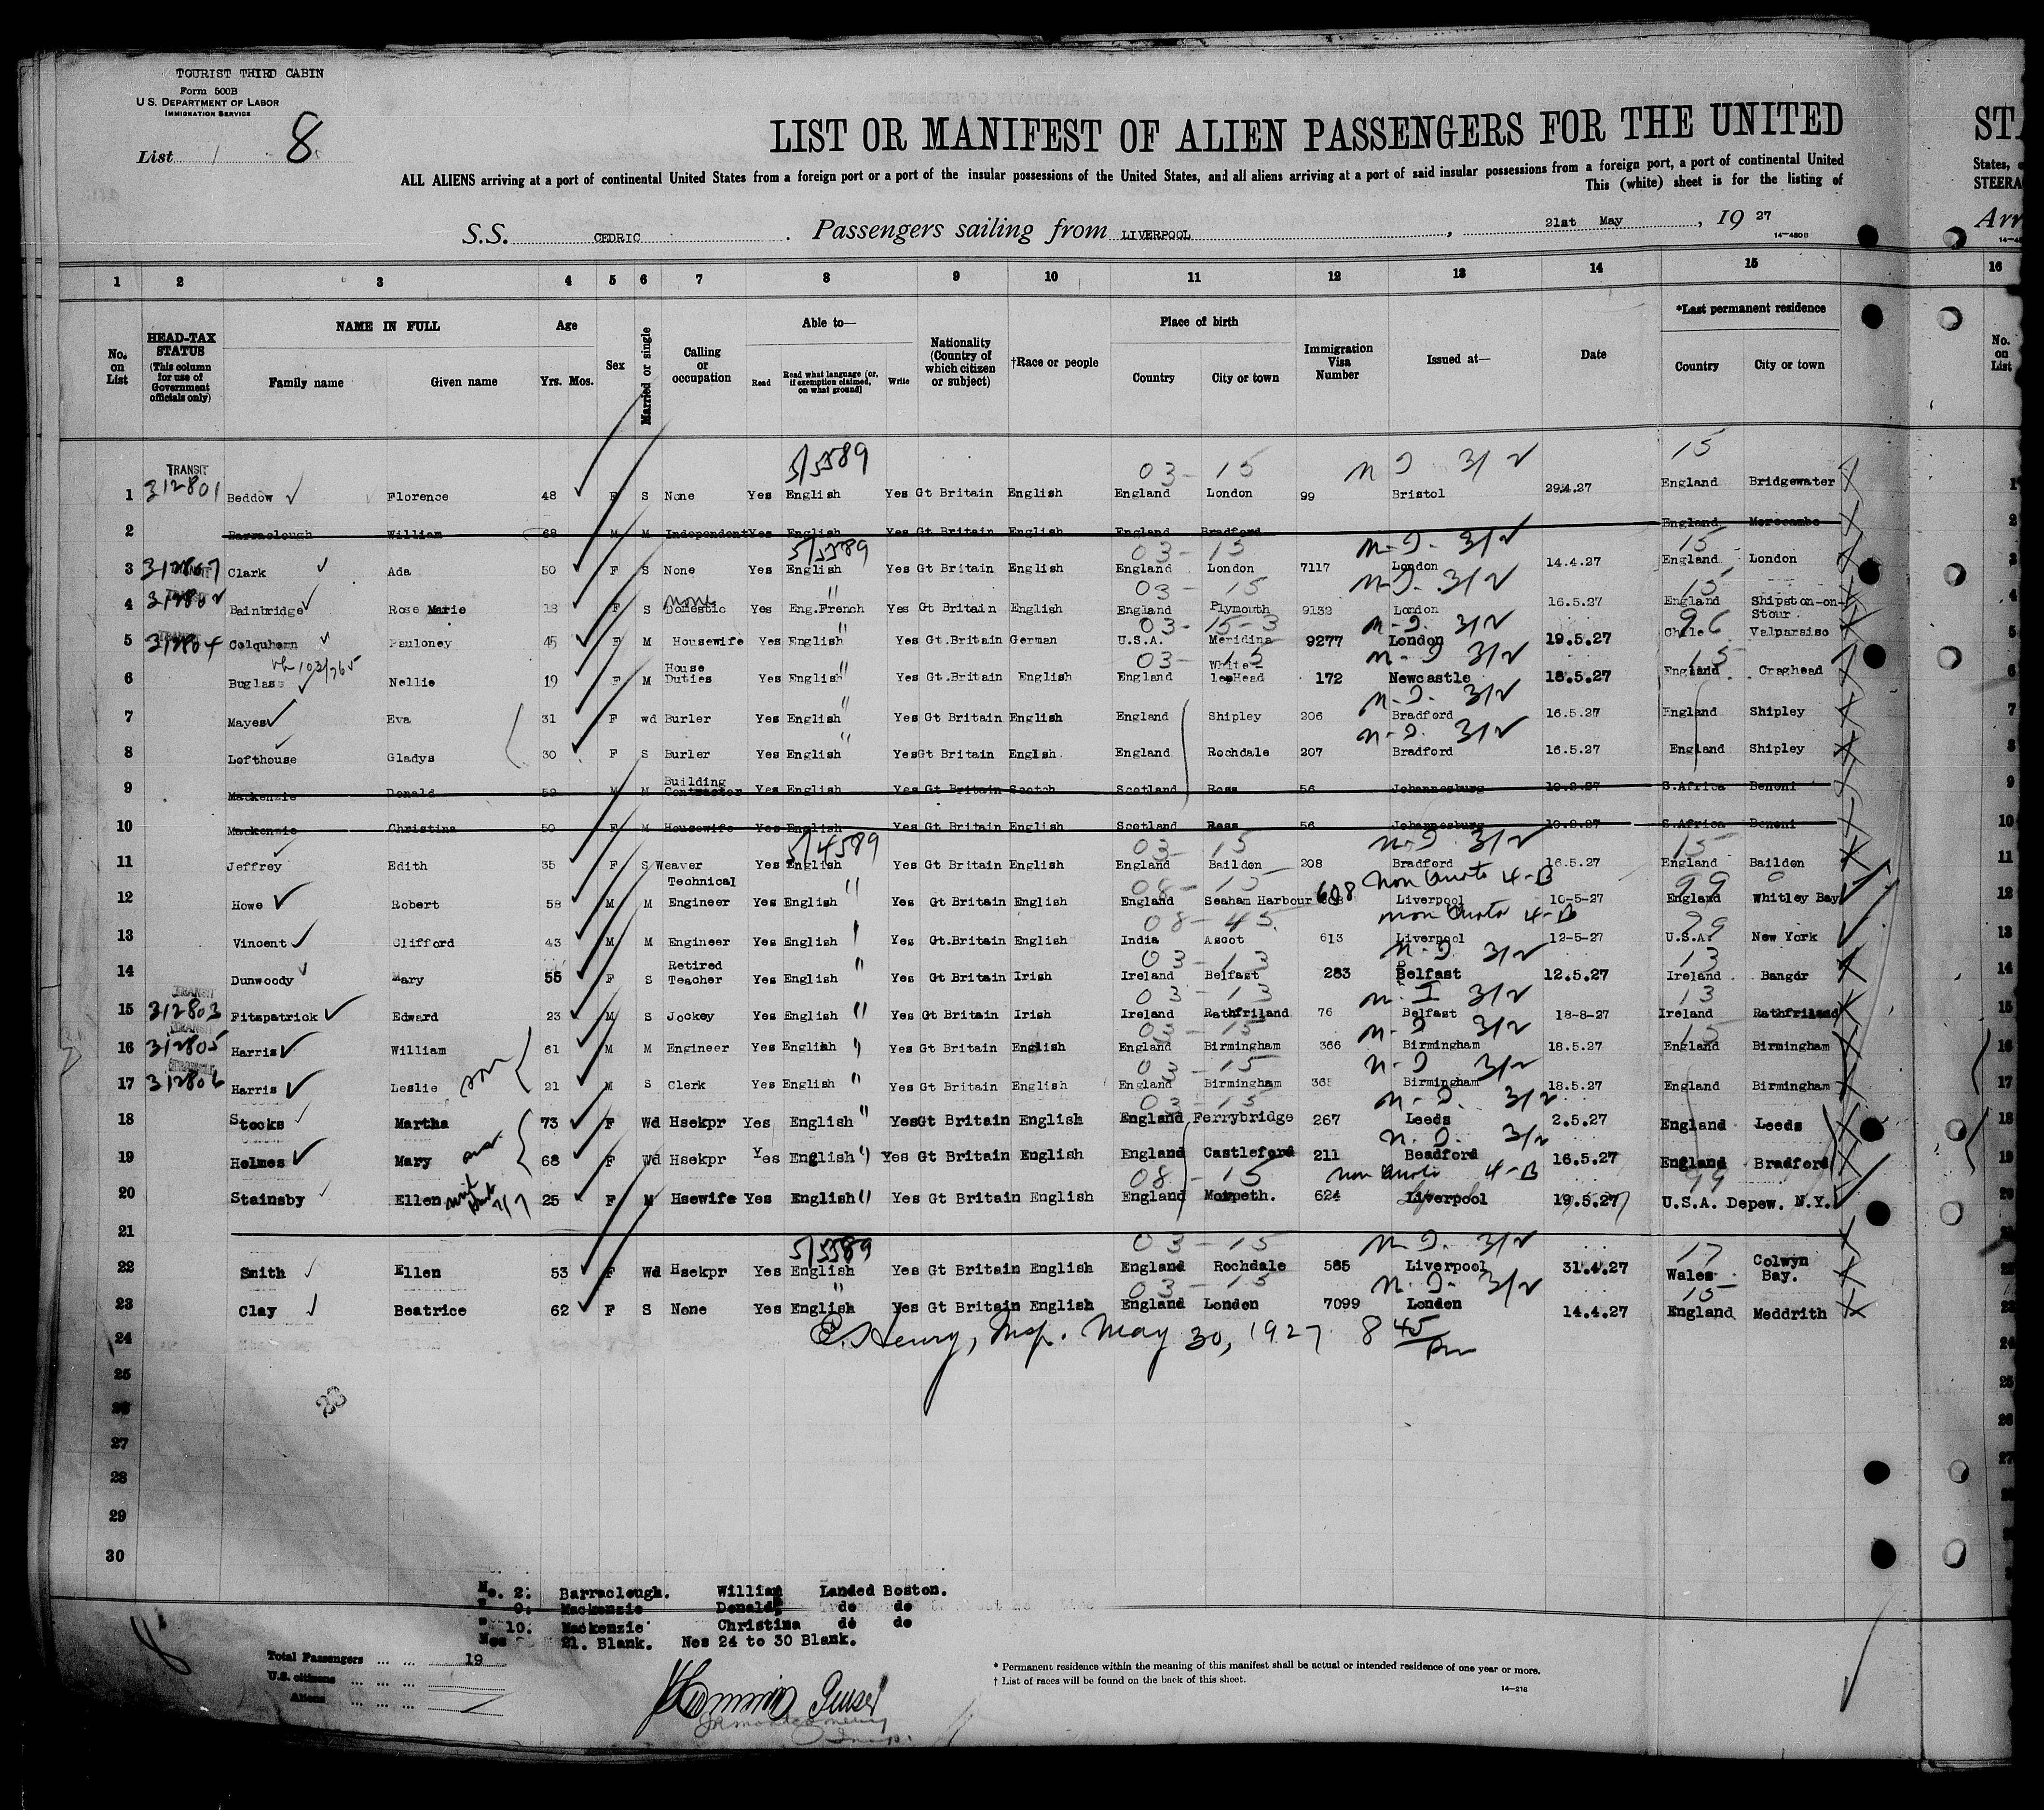 TOURIST THIRD CABIN
Form 500B
U.S. DEPARTMENT OF LABOR
IMMIGRATION SERVICE
List 8
LIST OR MANIFEST OF ALIEN PASSENGERS FOR THE UNITED
ALL ALIENS arriving at a port of continental United States from a foreign port or a port of the insular possessions of the United States, and all aliens arriving at a port of said insular possessions from a foreign port, a port of continental United
This (white) sheet is for the listing of
S.S. CEDRIC . Passengers sailing from LIVERPOOL , 21st May , 19 27
14-480B
1 2 3 4 5 6 7 8 9 10 11 12 13 14 15
No. on List
HEAD-TAX STATUS (This column for use of Government officials only)
NAME IN FULL Family name Given name
Age Yrs. Mos.
Sex
Married or single
Calling or occupation
Able to— Read Read what language [or, if exemption claimed, on what ground] Write
Nationality (Country of which citizen or subject)
†Race or people
Place of birth Country City or town
Immigration Visa Number
Issued at—
Date
*Last permanent residence Country City or town
TRANSIT 5/5589 03-15 3/2 15
1 312801 Beddow Florence 48 F S None Yes English Yes Gt Britain English England London 99 Bristol 29.4.27 England Bridgewater
2 Barraclough William 68 M M Independent Yes English Yes Gt Britain English England Bradford England Morecambe
5/5589 03-15 3/2 15
3 Clark Ada 50 F S None Yes English Yes Gt Britain English England London 7117 London 14.4.27 England London
none 03-15 3/2 15
4 312802 Bainbridge Rose Marie 18 F S Domestic Yes Eng.French Yes Gt Britain English England Plymouth 9132 London 16.5.27 England Shipston-on-Stour
03-15-3 3/2 96
5 312804 Colquhoun Pauloney 45 F M Housewife Yes English Yes Gt.Britain German U.S.A. Meridina 9277 London 19.5.27 Chile Valparaiso
03-15 3/2 15
6 Buglass Nellie 19 F M House Duties Yes English Yes Gt.Britain English England 172 Newcastle 18.5.27 England Craghead
3/2
7 Mayes Eva 31 F wd Burler Yes English Yes Gt Britain English England Shipley 206 Bradford 16.5.27 England Shipley
3/2
8 Lofthouse Gladys 30 F S Burler Yes English Yes Gt Britain English. England Rochdale 207 Bradford 16.5.27 England Shipley
9 Mackenzie Donald 59 M M Building Contractor Yes English Yes Gt Britain Scotch Scotland Ross 56 Johannesburg S.Africa Benoni
10 Mackenzie Christina 50 F M Housewife Yes English Yes Gt Britain English Scotland Ross 56 Johannesburg S.Africa Benoni
5/4589 03-15 3/2 15
11 Jeffrey Edith 35 F S Weaver Yes English Yes Gt Britain English England Baildon 208 Bradford 16.5.27 England Baildon
08-15 608 Non Quota 4-B 99
12 Howe Robert 58 M M Technical Engineer Yes English Yes Gt Britain English England Seaham Harbour Liverpool 10-5-27 England Whitley Bay
08-45 non Quota 4-B 99
13 Vincent Clifford 43 M M Engineer Yes English Yes Gt.Britain English India Ascot 613 Liverpool 12-5-27 U.S.A. New York
03-13 3/2 13
14 Dunwoody Mary 55 F S Retired Teacher Yes English Yes Gt Britain Irish Ireland Belfast 283 Belfast 12.5.27 Ireland Bangor
TRANSIT 03-13 3/2 13
15 312803 Fitzpatrick Edward 23 M S Jockey Yes English Yes Gt Britain Irish Ireland Rathfriland 76 Belfast 18-8-27 Ireland Rathfriland
TRANSIT 03-15 3/2 15
16 312805 Harris William 61 M M Engineer Yes English Yes Gt Britain English England Birmingham 366 Birmingham 18.5.27 England Birmingham
TRANSIT son 03-15 3/2
17 312806 Harris Leslie 21 M S Clerk Yes English Yes Gt Britain English England Birmingham 365 Birmingham 18.5.27 England Birmingham
03-15 3/2
18 Stocks Martha 73 F Wd Hsekpr Yes English Yes Gt Britain English England Ferrybridge 267 Leeds 2.5.27 England Leeds
3/2
19 Holmes Mary 68 F Wd Hsekpr Yes English Yes Gt Britain English England Castleford 211 Beadford 16.5.27 England Bradford
08-15 non Quota 4-B 99
20 Stainsby Ellen 25 F M Hsewife Yes English Yes Gt Britain English England Morpeth. 624 Liverpool 19.5.27 U.S.A. Depew. N.Y.
21
5/5589 03-15 3/2 17
22 Smith Ellen 53 F Wd Hsekpr Yes English Yes Gt Britain English England Rochdale 585 Liverpool 31.4.27 Wales Colwyn Bay.
03-15 3/2 15
23 Clay Beatrice 62 F S None Yes English Yes Gt Britain English England London 7099 London 14.4.27 England Meddrith
24 Henry, Insp. May 30, 1927 8 45 pm
25
26
27
28
29
30
No. 2. Barraclough. William Landed Boston.
" 9. Mackenzie Donald do do
" 10. Mackenzie Christina do do
Nos 21. Blank. Nos 24 to 30 Blank.
Total Passengers ... ... 19
U.S. citizens ... ... ...
Aliens ... ... ...
* Permanent residence within the meaning of this manifest shall be actual or intended residence of one year or more.
† List of races will be found on the back of this sheet.
14-218
States,
STEERA
Arr
16
No. on List